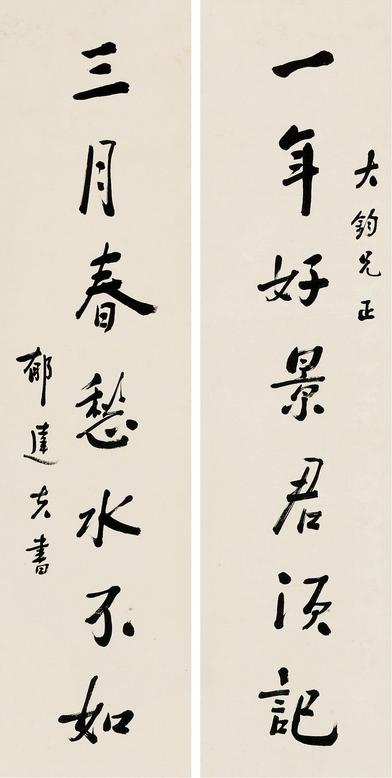 大鈞兄正
一年好景君須記
三月春愁水不如
郁達夫書